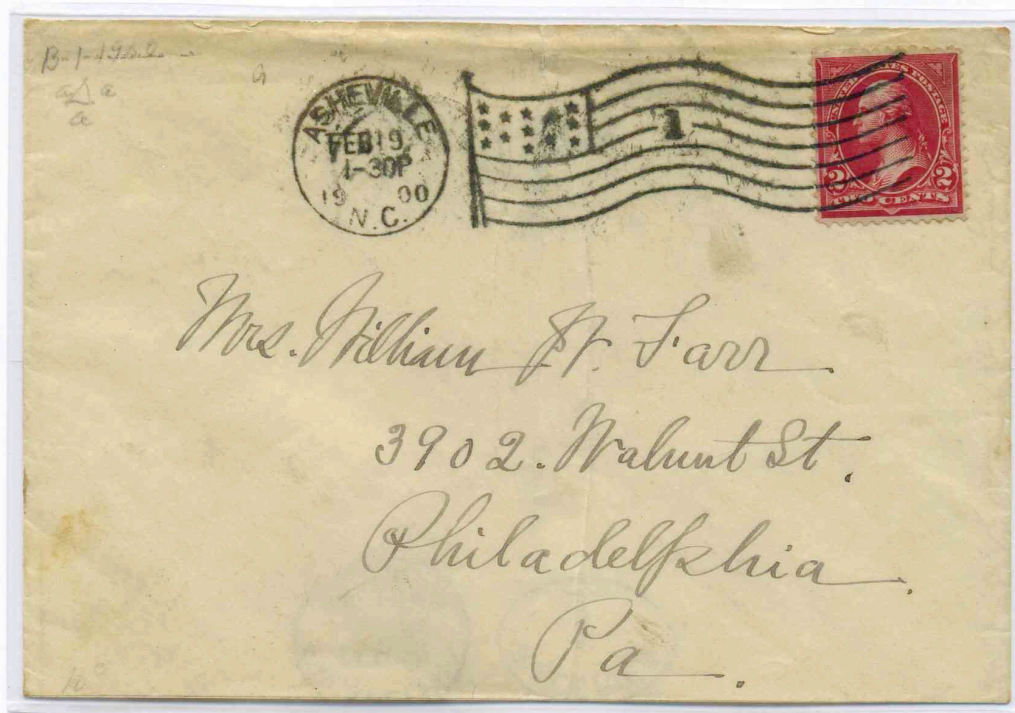 ASHEVILLE
FEB 19
1-30P
1900
N.C.
1
UNITED STATES POSTAGE
2 2
TWO CENTS
Mrs. William W. Farr
3902. Walnut St.
Philadelphia.
Pa.